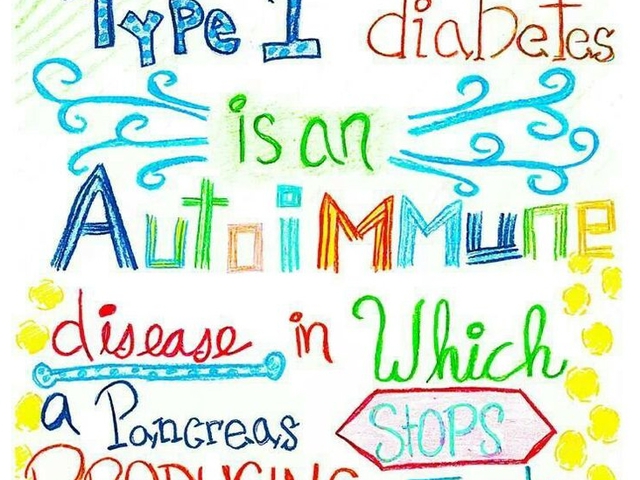 Type 1 diabetes
is an
AutoiMMune
disease in Which
a Pancreas StOPS
PRODUCING